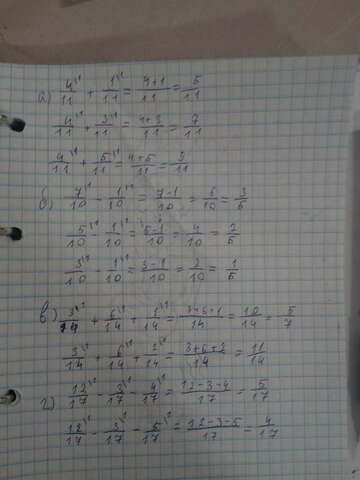 а) 4/11 \1 + 1/11 \1 = 4+1/11 = 5/11
4/11 \1 + 3/11 \1 = 4+3/11 = 7/11
4/11 \1 + 5/11 \1 = 4+5/11 = 9/11
б) 7/10 \1 - 1/10 \1 = 7-1/10 = 6/10 = 3/5
5/10 \1 - 1/10 \1 = 5-1/10 = 4/10 = 2/5
3/10 \1 - 1/10 \1 = 3-1/10 = 2/10 = 1/5
в) 3/14 \1 + 6/14 \1 + 1/14 \1 = 3+6+1/14 = 10/14 = 5/7
3/14 \1 + 6/14 \1 + 2/14 \1 = 3+6+2/14 = 11/14
г) 12/17 \1 - 3/17 \1 - 4/17 \1 = 12-3-4/17 = 5/17
12/17 \1 - 3/17 \1 - 5/17 \1 = 12-3-5/17 = 4/17